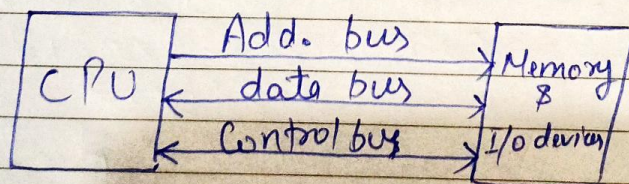 Add. bus
CPU
data bus
Control bus
Memory
&
I/o devices